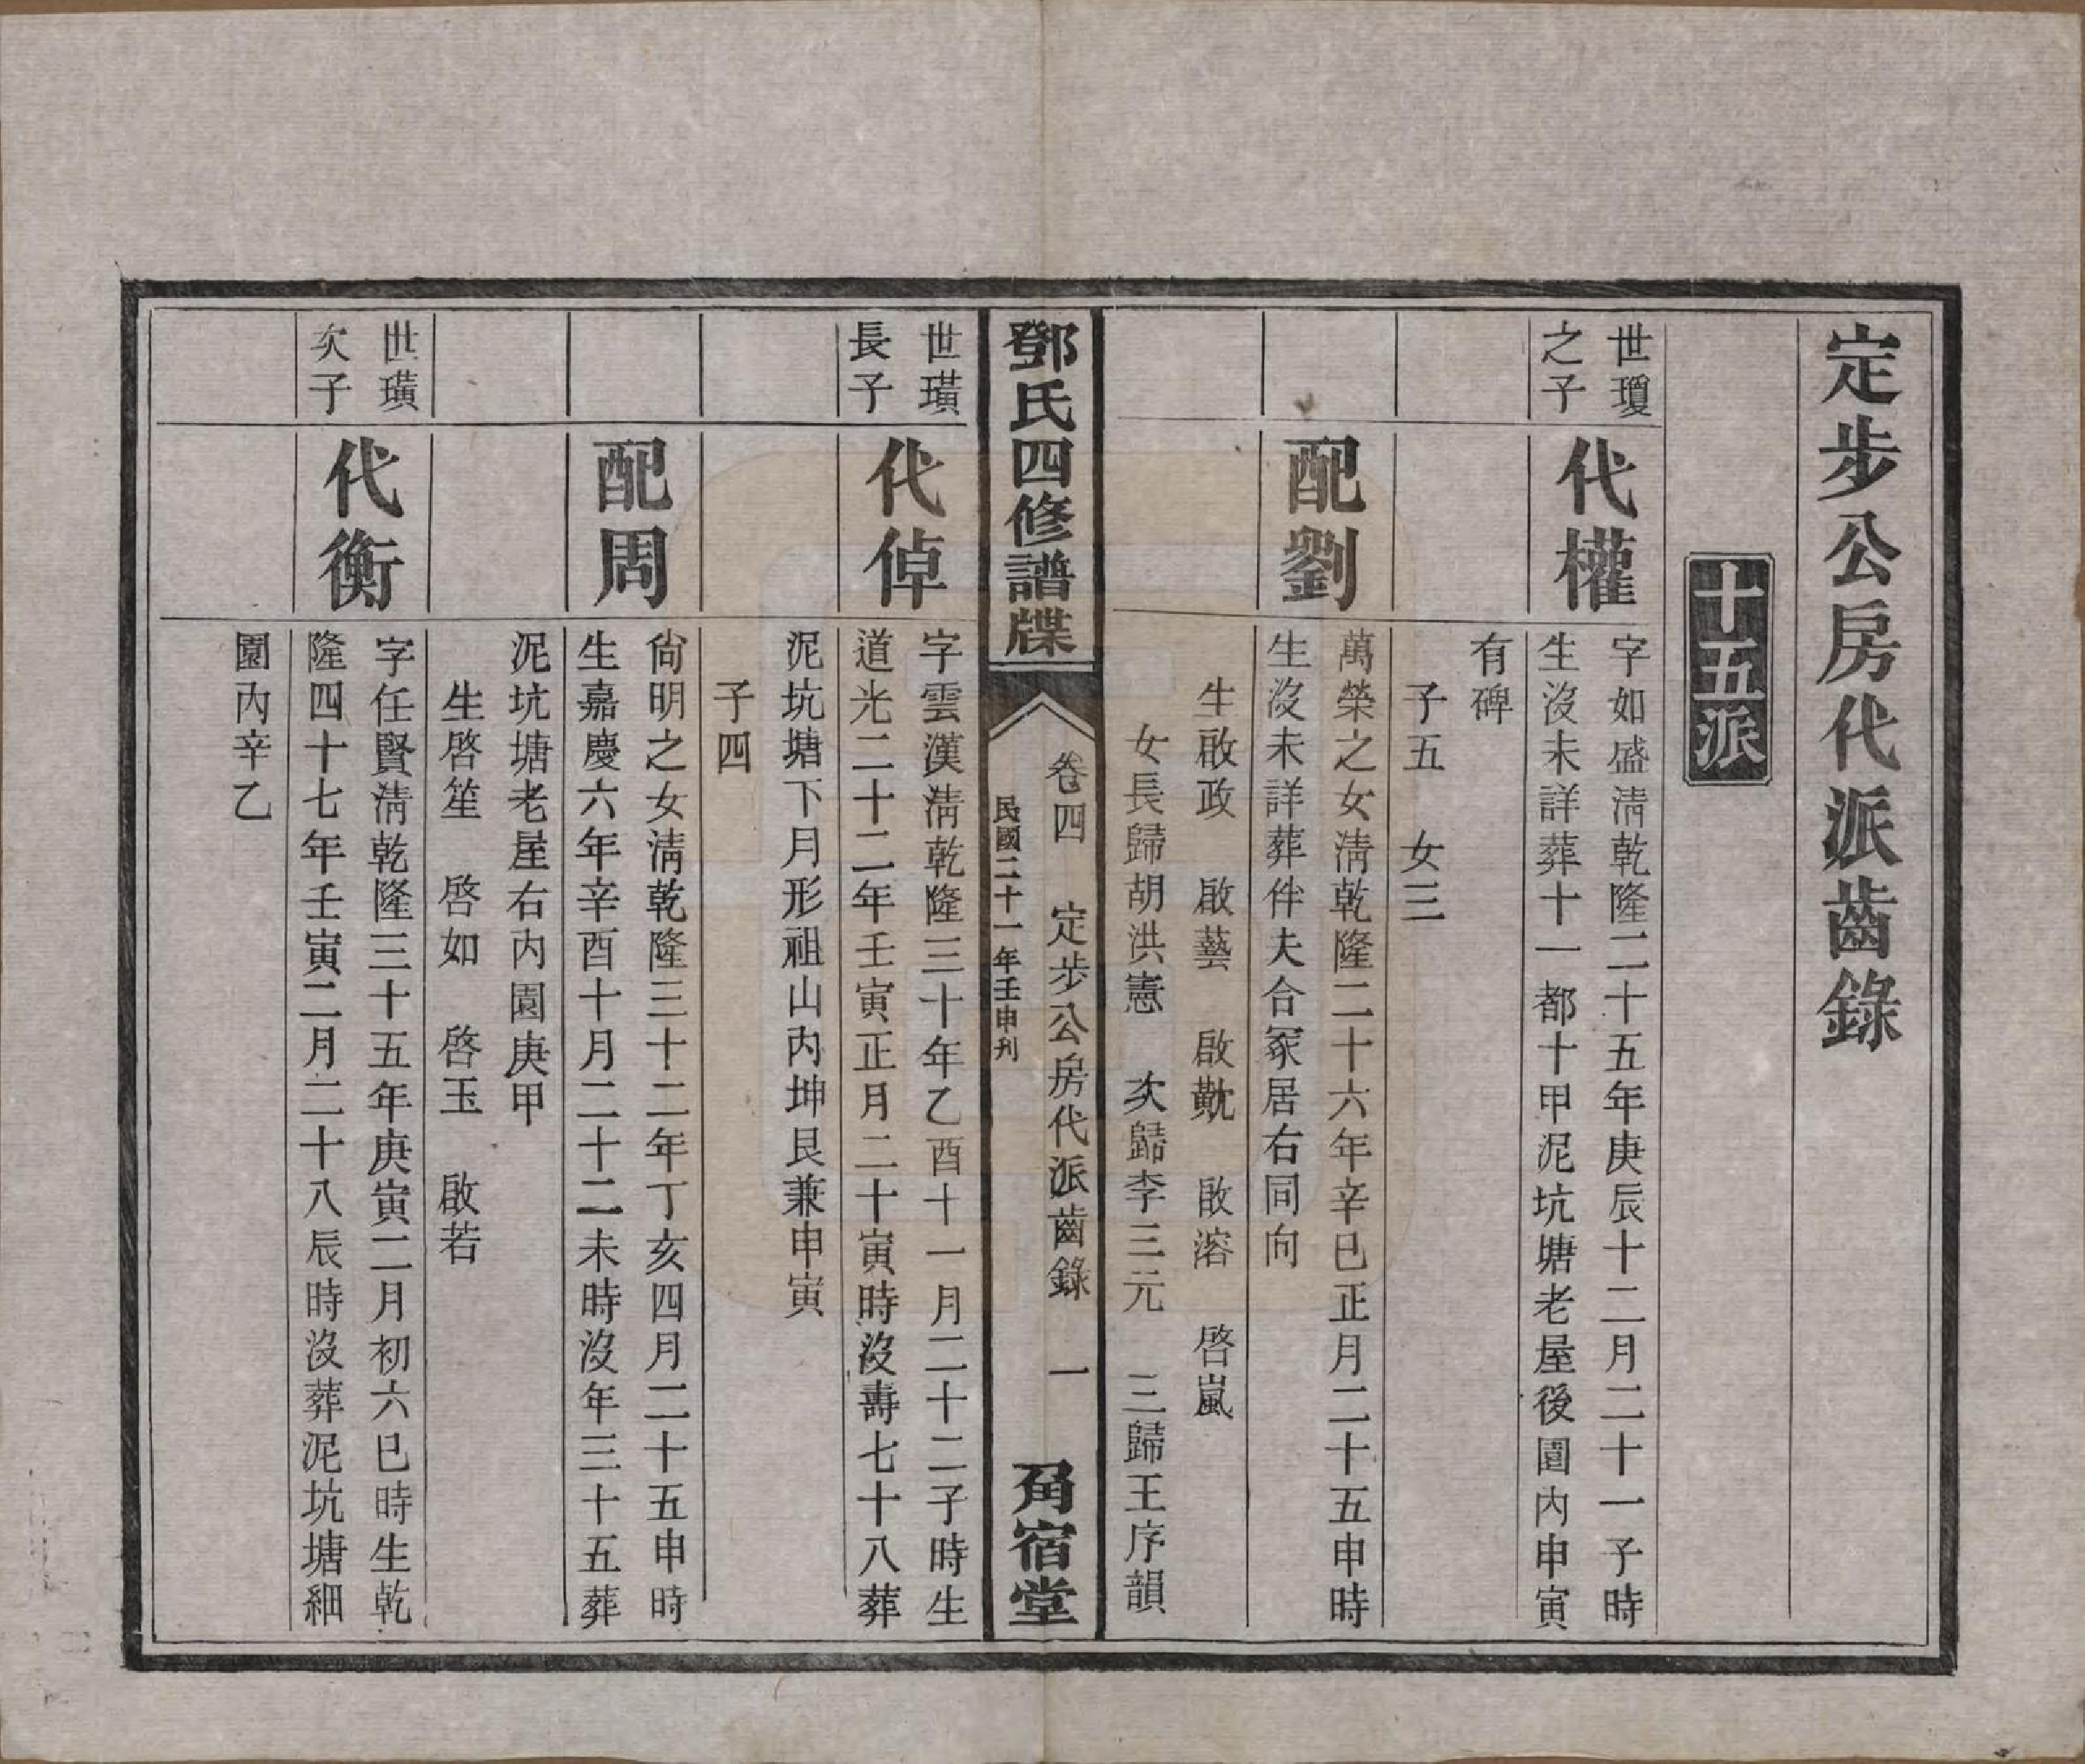 定步公房代派齒錄
十五派
世瓊
之子
代權
字如盛淸乾隆二十五年庚辰十二月二十一子時
生沒未詳葬十一都十甲泥坑塘老屋後園內申寅
有碑
子五　女三
配劉
萬榮之女淸乾隆二十六年辛巳正月二十五申時
生沒未詳葬伴夫合冢居右同向
生啟政　啟藝　啟勷　啟溶　啓嵐
女長歸胡洪憲　次歸李三元　三歸王序韻
鄧氏四修譜牒
卷四　定步公房代派齒錄　一
民國二十一年壬申刊
角宿堂
世璜
長子
代倬
字雲漢淸乾隆三十年乙酉十一月二十二子時生
道光二十二年壬寅正月二十寅時沒壽七十八葬
泥坑塘下月形祖山內坤艮兼申寅
子四
配周
尙明之女淸乾隆三十二年丁亥四月二十五申時
生嘉慶六年辛酉十月二十二未時沒年三十五葬
泥坑塘老屋右內園庚甲
生啓笙　啓如　啓玉　啟若
世璜
次子
代衡
字任賢淸乾隆三十五年庚寅二月初六巳時生乾
隆四十七年壬寅二月二十八辰時沒葬泥坑塘細
園內辛乙